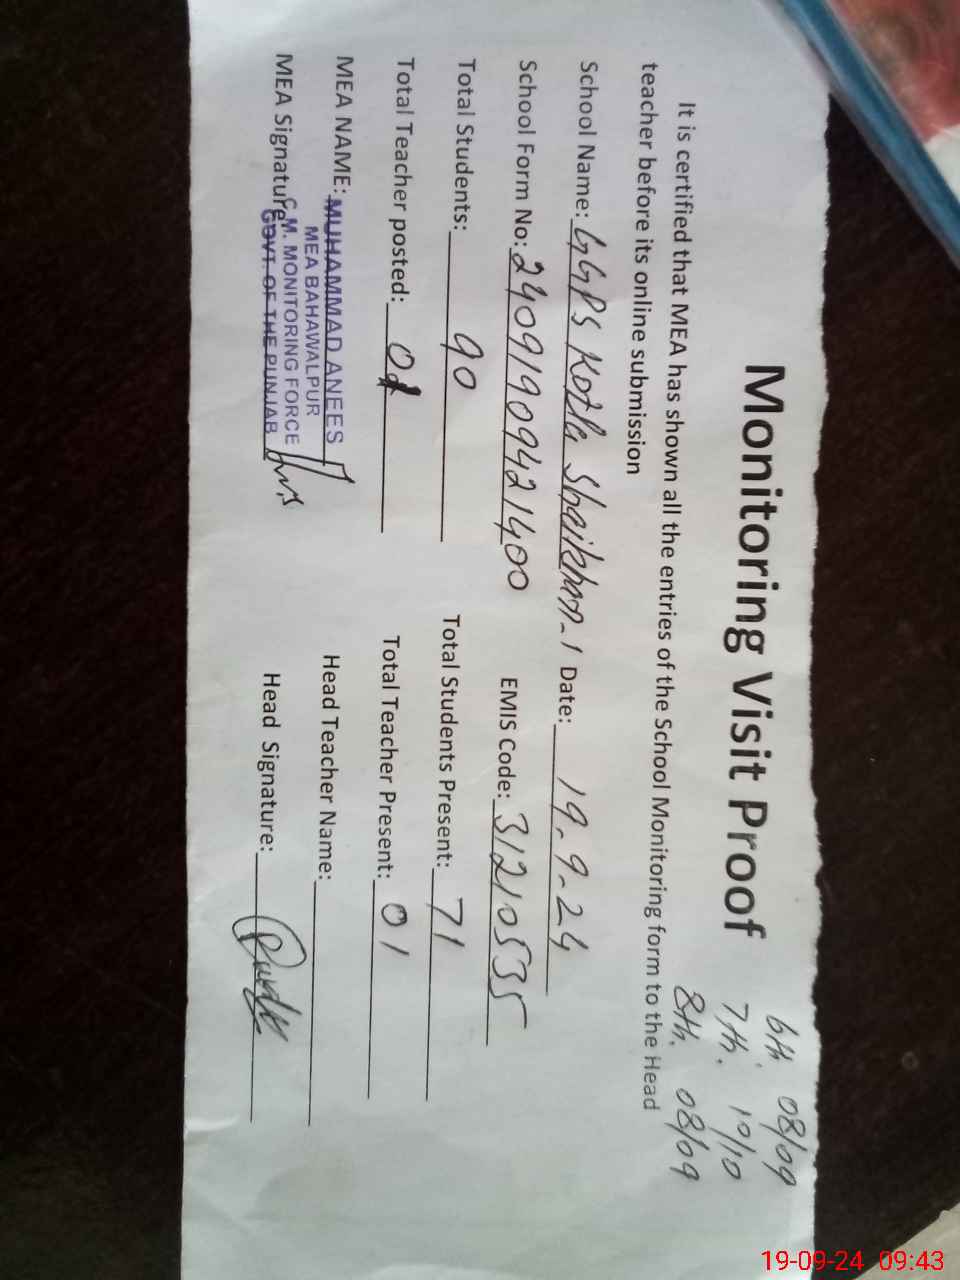 Monitoring Visit Proof
6th. 08/09
7th. 10/10
8th. 08/09
It is certified that MEA has shown all the entries of the School Monitoring form to the Head
teacher before its online submission
School Name: GGPS Kotla Sheikhan-1 Date: 19-9-24
School Form No: 2409190942 1400 EMIS Code: 31210535
Total Students: 90 Total Students Present: 71
Total Teacher posted: 01 Total Teacher Present: 01
MEA NAME: MUHAMMAD ANEES Head Teacher Name:
MEA BAHAWALPUR
C.M. MONITORING FORCE
GOVT. OF THE PUNJAB
MEA Signature: Head Signature:
19-09-24 09:43